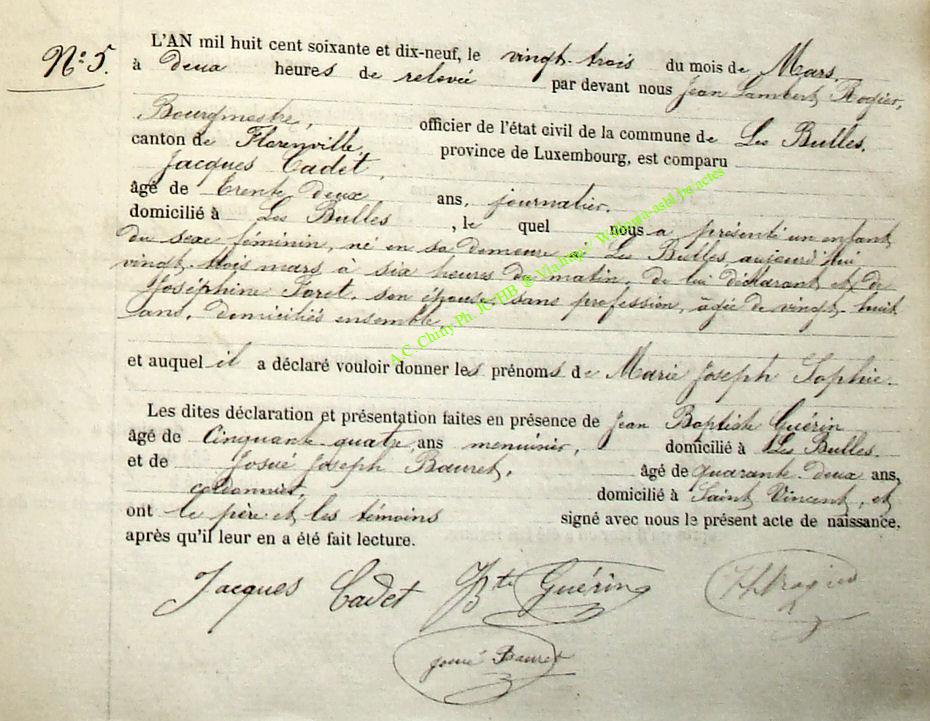 N° 5.
L'AN mil huit cent soixante et dix-neuf, le vingt-trois du mois de Mars,
à deux heures de relevée par devant nous Jean Lambert Rogier,
Bourgmestre, officier de l'état civil de la commune de Les Bulles,
canton de Florenville, province de Luxembourg, est comparu
Jacques Cadet,
âgé de trente deux ans, journalier,
domicilié à Les Bulles, le quel nous a présenté un enfant
du sexe féminin, né en sa demeure à Les Bulles aujourd'hui
vingt-trois mars, à six heures du matin, de lui déclarant et de
Joséphine Foret, son épouse, sans profession, âgée de vingt-huit
ans, domiciliés ensemble
et auquel il a déclaré vouloir donner les prénoms de Marie Joseph Sophie.
Les dites déclaration et présentation faites en présence de Jean Baptiste Guérin
âgé de Cinquante quatre ans menuisier, domicilié à Les Bulles
et de Josué Joseph Bauret, âgé de quarante-deux ans,
cordonnier, domicilié à Saint Vincent, et
ont le père et les témoins signé avec nous le présent acte de naissance,
après qu'il leur en a été fait lecture.
Jacques Cadet JBte Guérin
Josué Bauret
A.C. Chiny Ph. JC HB @